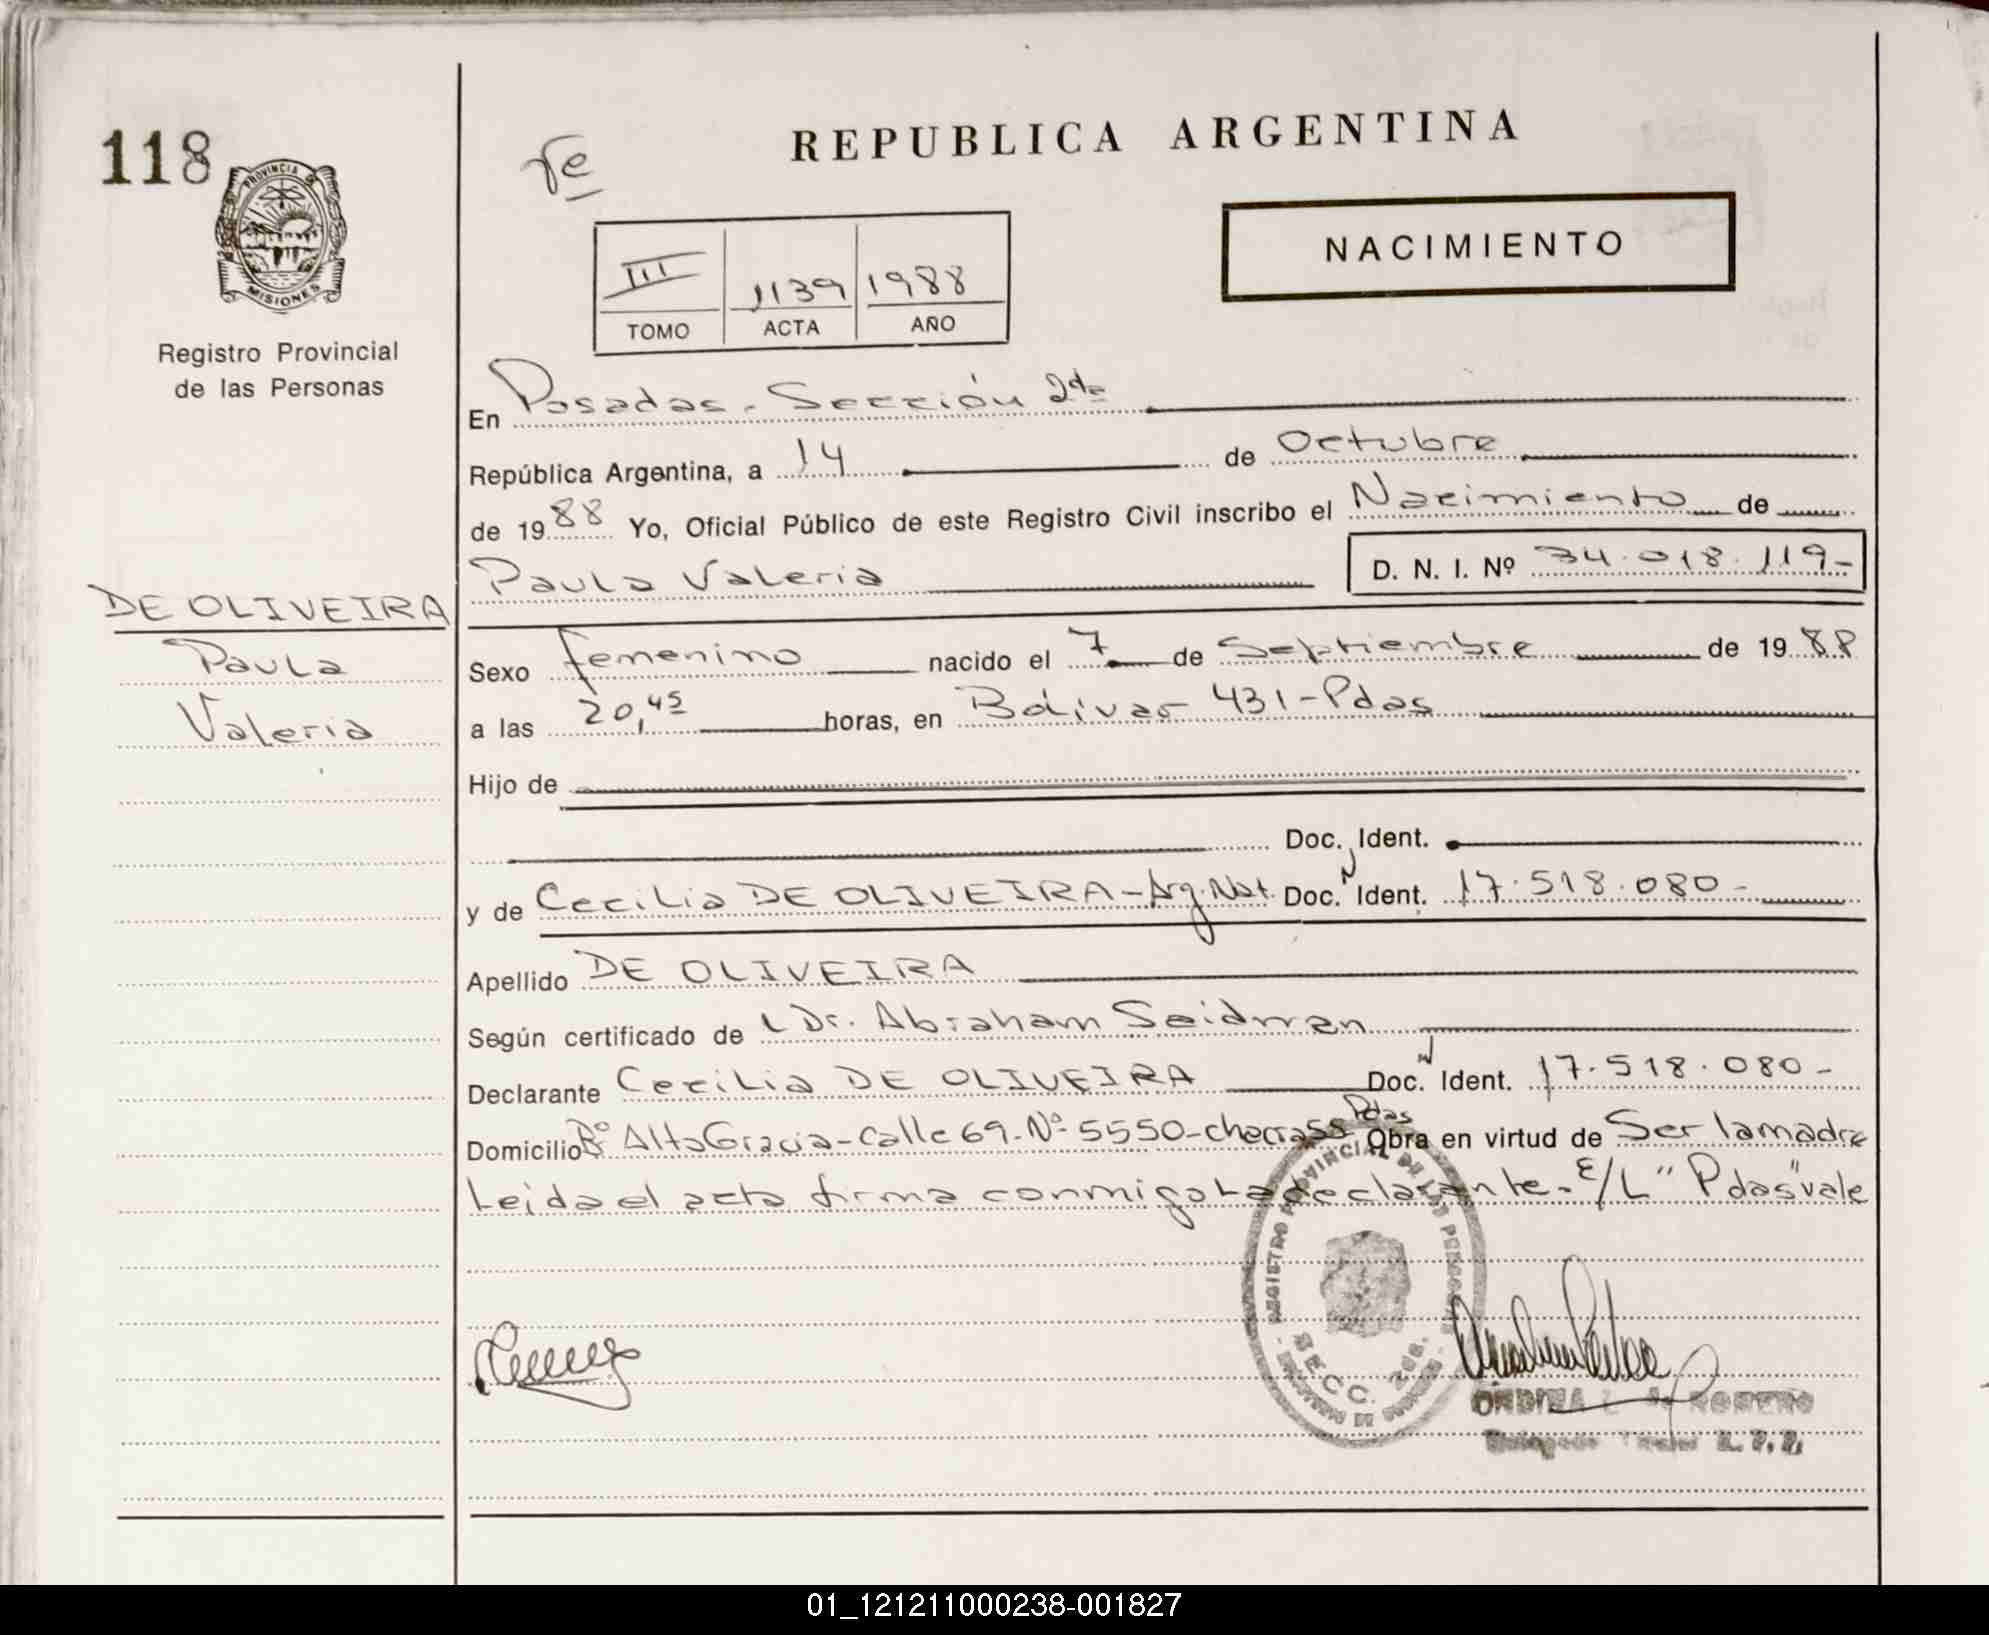 118
REPUBLICA ARGENTINA
PROVINCIA DE
MISIONES
Registro Provincial
de las Personas
III 1139 1988
TOMO ACTA AÑO
NACIMIENTO
En Posadas - Sección 2da
República Argentina, a 14 de Octubre
de 1988 Yo, Oficial Público de este Registro Civil inscribo el Nacimiento de
Paula Valeria D. N. I. Nº 34.018.119-
DE OLIVEIRA
Paula
Valeria
Sexo femenino nacido el 7 de Septiembre de 1988
a las 20,45 horas, en Bolívar 431-Pdas
Hijo de
Doc. Ident.
y de Cecilia DE OLIVEIRA - Arg. Nat. Doc. N Ident. 17.518.080-
Apellido DE OLIVEIRA
Según certificado de Dr. Abraham Seidman
Declarante Cecilia DE OLIVEIRA Doc. N Ident. 17.518.080-
Domicilio Bº Alta Gracia - Calle 69 - Nº 5550 - chacra Pdas Obra en virtud de Ser la madre
Leida el acta firma conmigo la declarante - E/L "Pdas" vale
REGISTRO PROVINCIAL DE LAS PERSONAS
SECC. 2da.
ONDINA L. de ROMERO